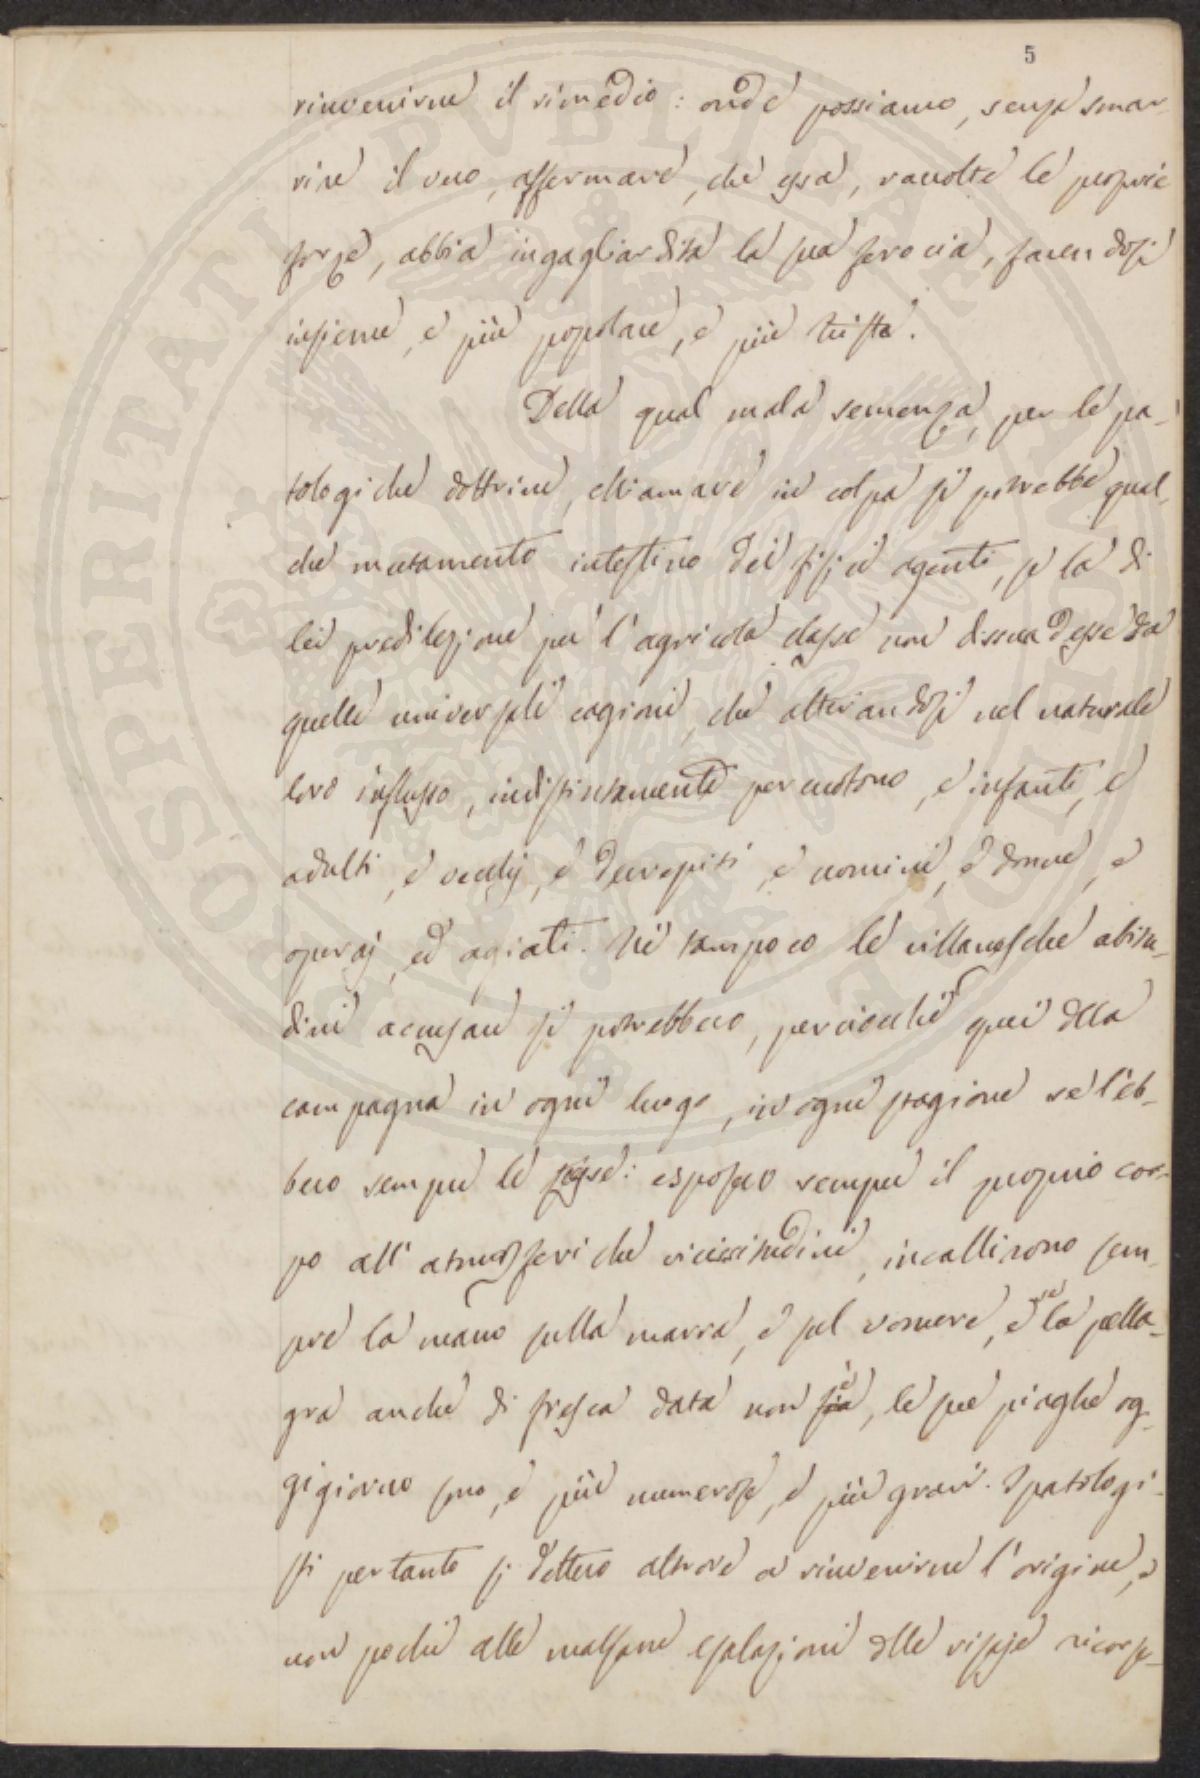 5
rinvenirne il rimedio: onde possiamo, senza smar-
rire il vero, affermare, che essa, raccolte le proprie
forze, abbia ingagliardita la sua ferocia, facendosi
insieme, e più popolare, e più trista.
Della qual mala semenza, per le pa-
tologiche dottrine, chiamare in colpa si potrebbe qual-
che mutamento intestino dei fisici agenti, se la di
lei predilezione per l'agricola classe non dissuadesse da
quelle universali cagioni, che alterandosi nel naturale
loro influsso, indistintamente percuotono, e infanti, e
adulti, e vecchj, e decrepiti, e uomini, e donne, e
operaj, ed agiati. Nè tampoco le villanesche abitu-
dini accusare si potrebbero, perciocchè quei della
campagna in ogni luogo, in ogni stagione se l'eb-
bero sempre le stesse: esposero sempre il proprio cor-
po all'atmosferiche vicissitudini, incallirono sem-
pre la mano sulla marra, e sul vomere, e se la pella-
gra anche di fresca data non è, le sue piaghe og-
gigiorno sono, e più numerose, e più gravi. I patologi-
sti pertanto si dettero altrove a rinvenirne l'origine, e
non pochi alle malsane esalazioni delle risaje ricorse-